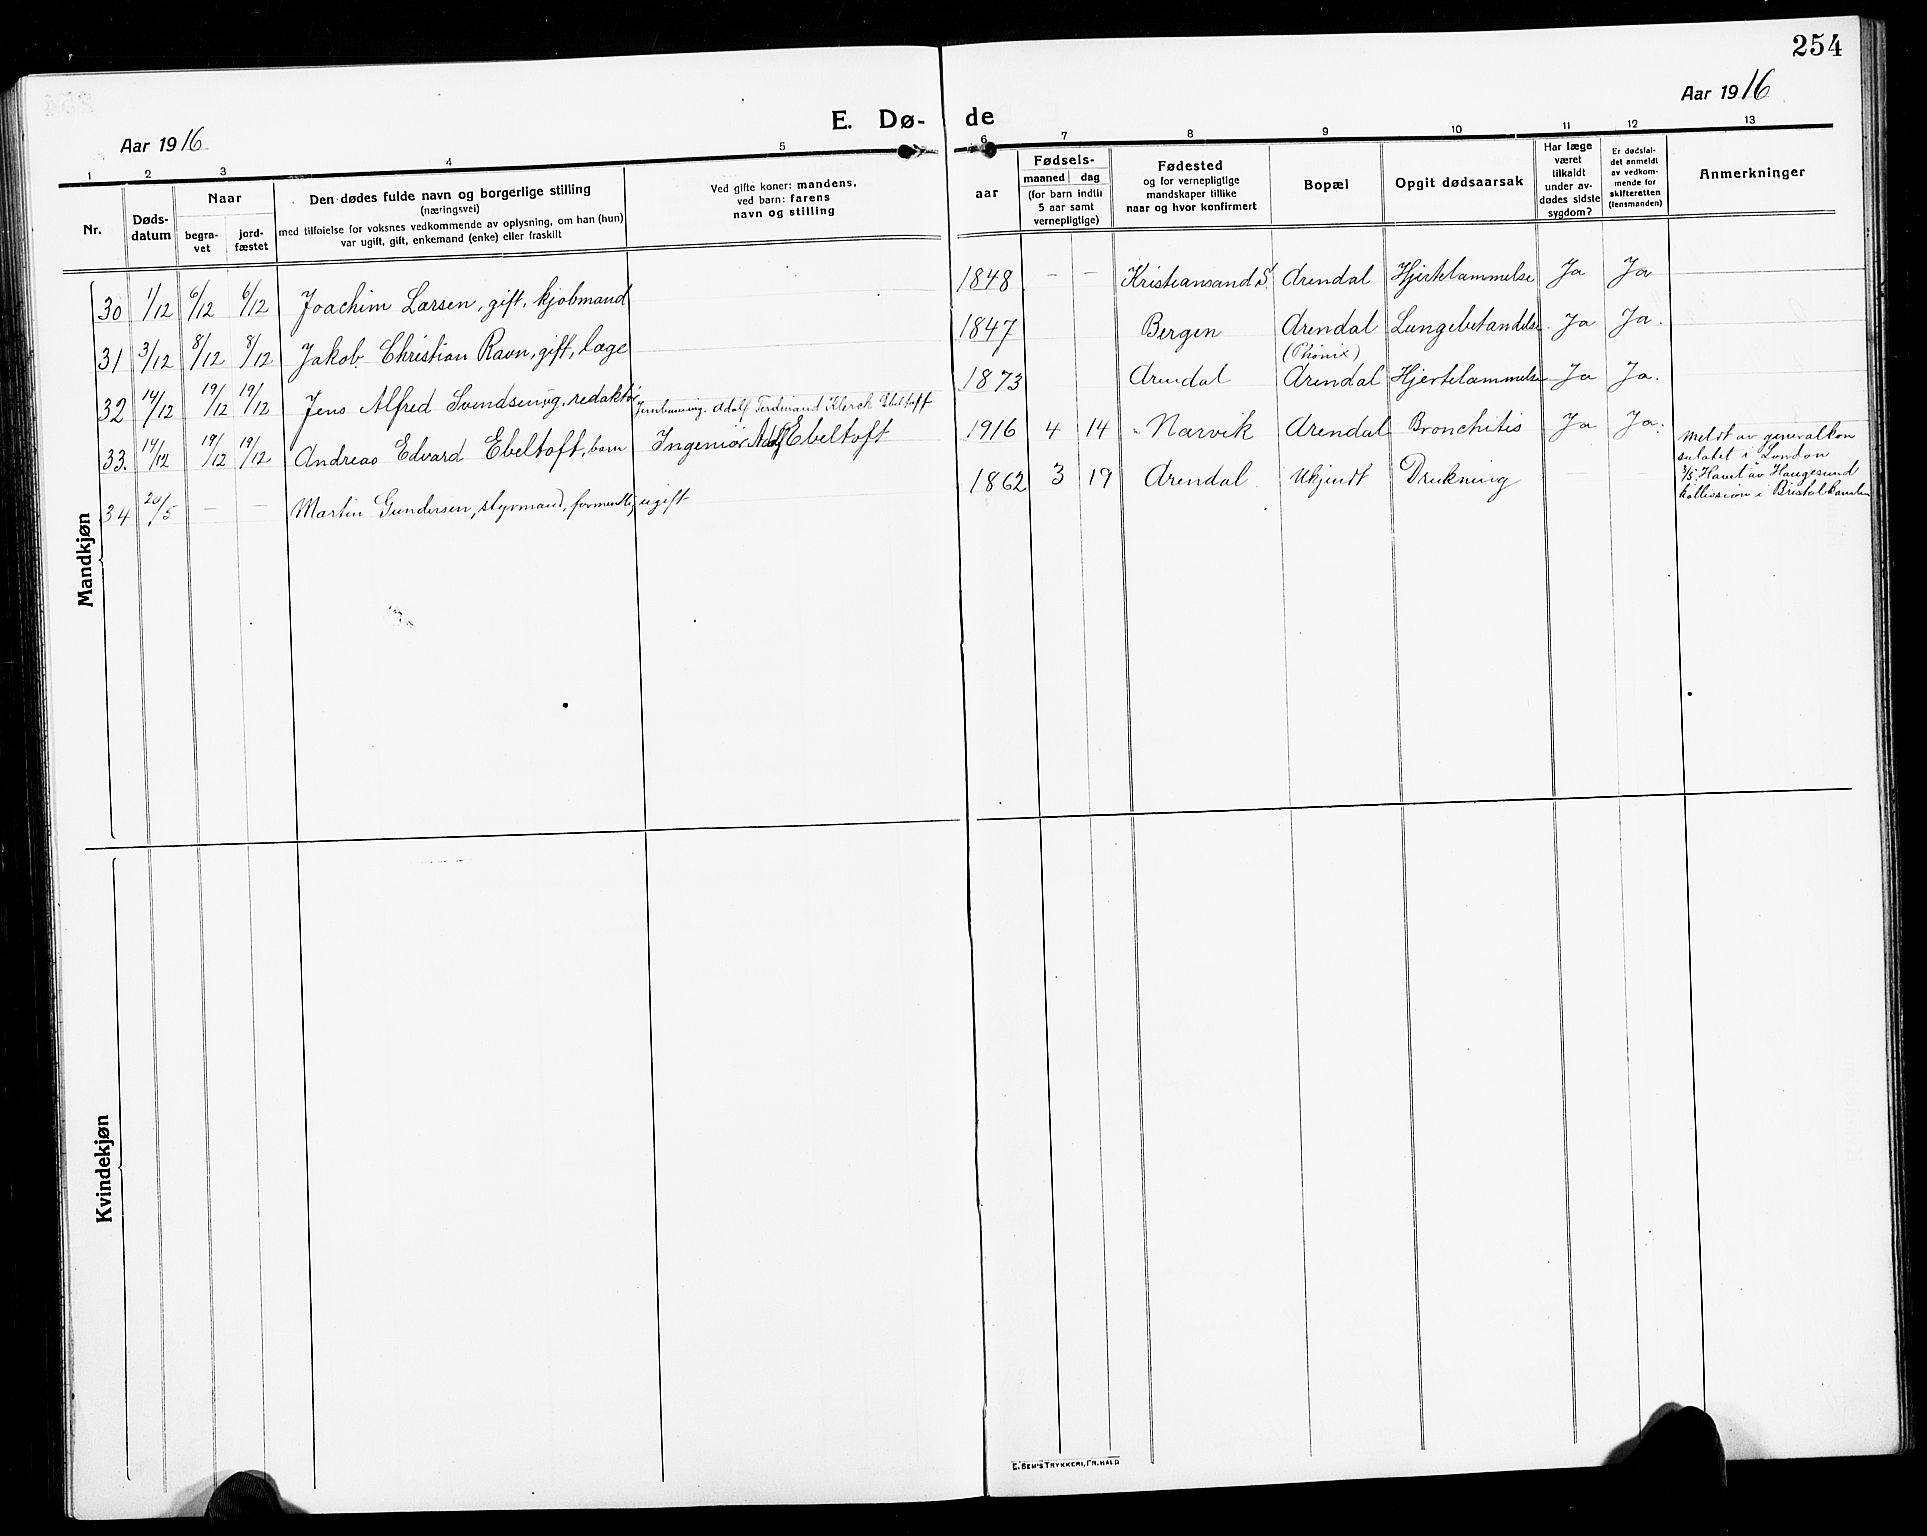 254
Aar 1916
E. Dø- de
Aar 1916
1 2 3 4 5 6 7 8 9 10 11 12 13
Nr.
Døds-
datum
Naar
begra-
vet
jord-
fæstet
Den dødes fulde navn og borgerlige stilling
(næringsvei)
med tilføielse for voksnes vedkommende av oplysning, om han (hun)
var ugift, gift, enkemand (enke) eller fraskilt
Ved gifte koner: mandens,
ved barn: farens
navn og stilling
aar
Fødsels-
maaned dag
(for barn indtil
5 aar samt
vernepligtige)
Fødested
og for vernepligtige
mandskaper tillike
naar og hvor konfirmert
Bopæl
Opgit dødsaarsak
Har læge
været
tilkaldt
under av-
dødes sidste
sygdom?
Er dødsfal-
det anmeldt
av vedkom-
mende for
skifteretten
(lensmanden)
Anmerkninger
Mandkjøn
30 1/12 6/12 6/12 Joachim Larsen, gift, kjøbmand 1848 - - Kristiansand S. Arendal Hjertelammelse Ja Ja
31 3/12 8/12 8/12 Jakob Christian Ravn, gift, læge 1847 Bergen Arendal Lungebetændelse Ja Ja.
(Phønix)
32 14/12 19/12 19/12 Jens Alfred Svendsen, ug. redaktør 1873 Arendal Arendal Hjertelammelse Ja Ja.
Adolf Ferdinand Klerck Ebeltoft
33. 14/12 19/12 19/12 Andreas Edvard Ebeltoft, barn Ingeniør Adolf Ebeltoft 1916 4 14 Narvik Arendal Bronchitis Ja Ja.
34 20/5 - - Martin Gundersen, styrmand, formentlig ugift 1862 3 19 Arendal Ukjendt Drukning - -
Meldt av generalkon
sulatet i London
Havet av Haugesund
kollission i Bristolkanalen
Kvindekjøn
E. SEM'S TRYKKERI, FR.HALD